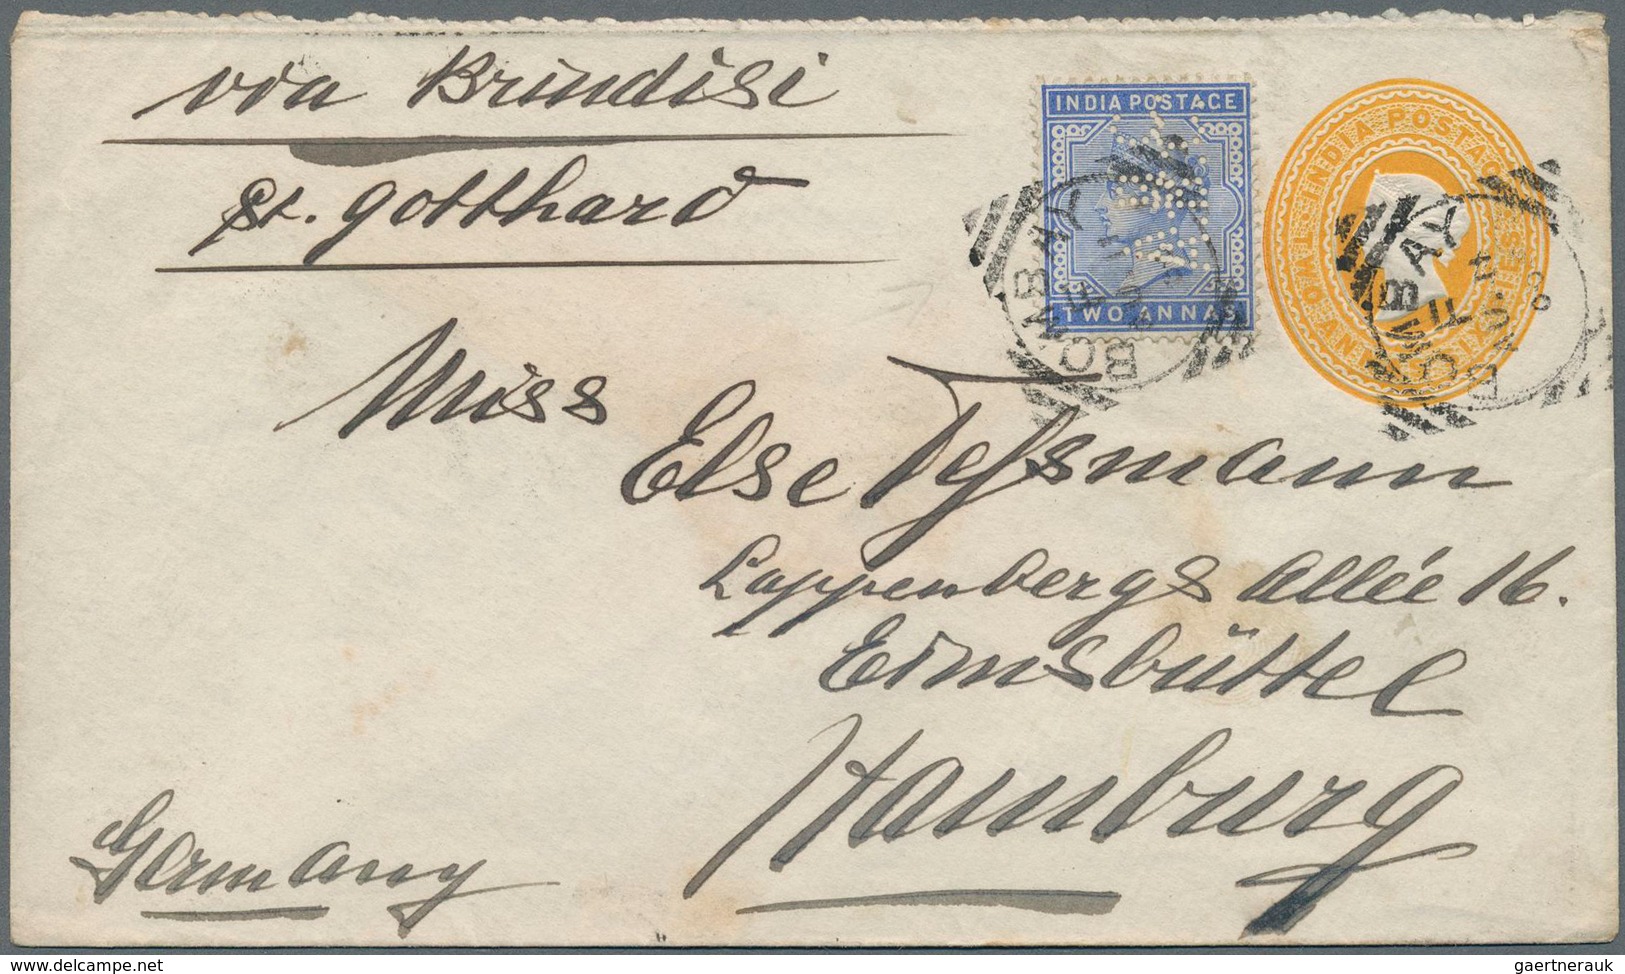 via Brindisi
St. Gotthard
INDIA POSTAGE
TWO ANNAS
INDIA POSTAGE
TWO ANNAS SIX PIES
BOMBAY
BOMBAY
AU 4
Miss
Else Tessmann
Lappenbergs Allée 16.
Eimsbüttel
Hamburg
Germany
delcampe.net
gaertnerauk